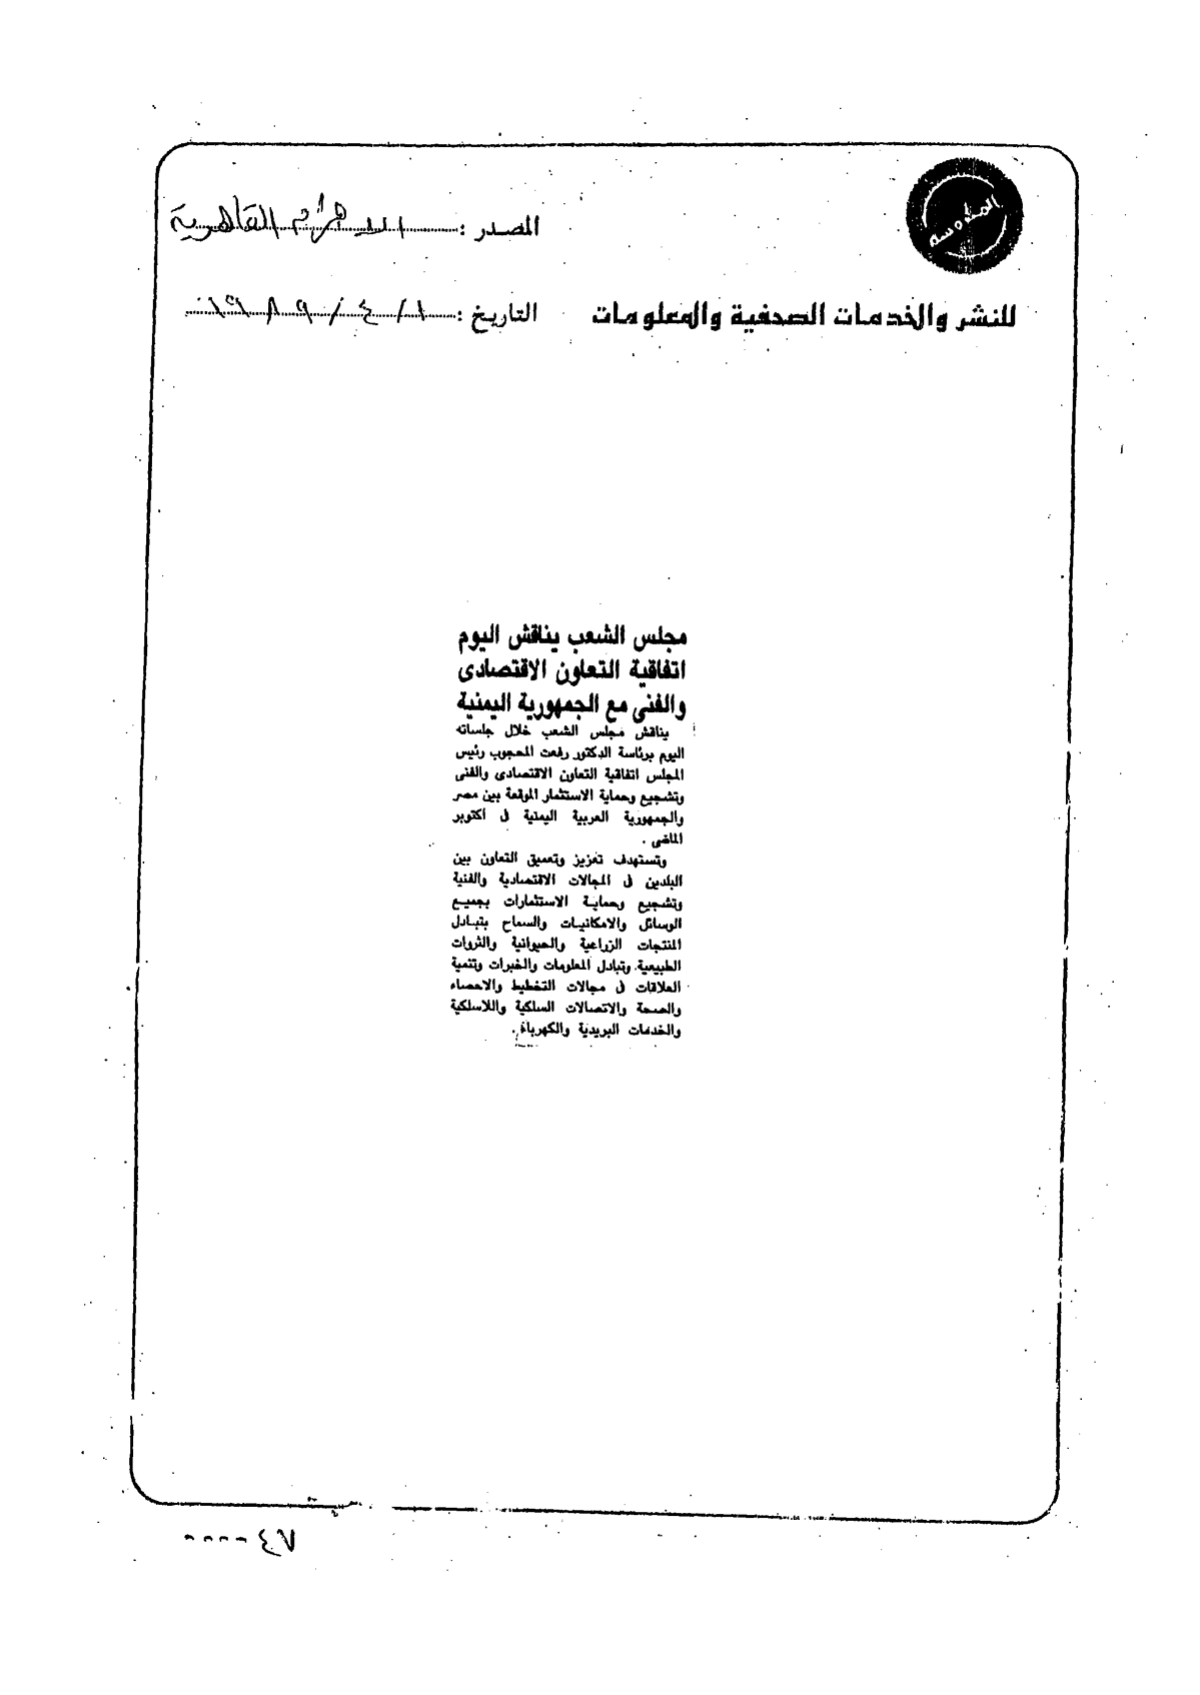 المحروسة
المصدر : الاهرام القاهرية
للنشر والخدمات الصحفية والمعلومات
التاريخ : ١ / ٤ / ١٩٨٩
مجلس الشعب يناقش اليوم
اتفاقية التعاون الاقتصادى
والفنى مع الجمهورية اليمنية
يناقش مجلس الشعب خلال جلساته
اليوم برئاسة الدكتور رفعت المحجوب رئيس
المجلس اتفاقية التعاون الاقتصادى والفنى
وتشجيع وحماية الاستثمار الموقعة بين مصر
والجمهورية العربية اليمنية فى اكتوبر
الماضى .
وتستهدف تعزيز وتعميق التعاون بين
البلدين فى المجالات الاقتصادية والفنية
وتشجيع وحماية الاستثمارات بجميع
الوسائل والامكانيات والسماح بتبادل
المنتجات الزراعية والحيوانية والثروات
الطبيعية وتبادل المعلومات والخبرات وتنمية
العلاقات فى مجالات التخطيط والاحصاء
والصحة والاتصالات السلكية واللاسلكية
والخدمات البريدية والكهرباء .